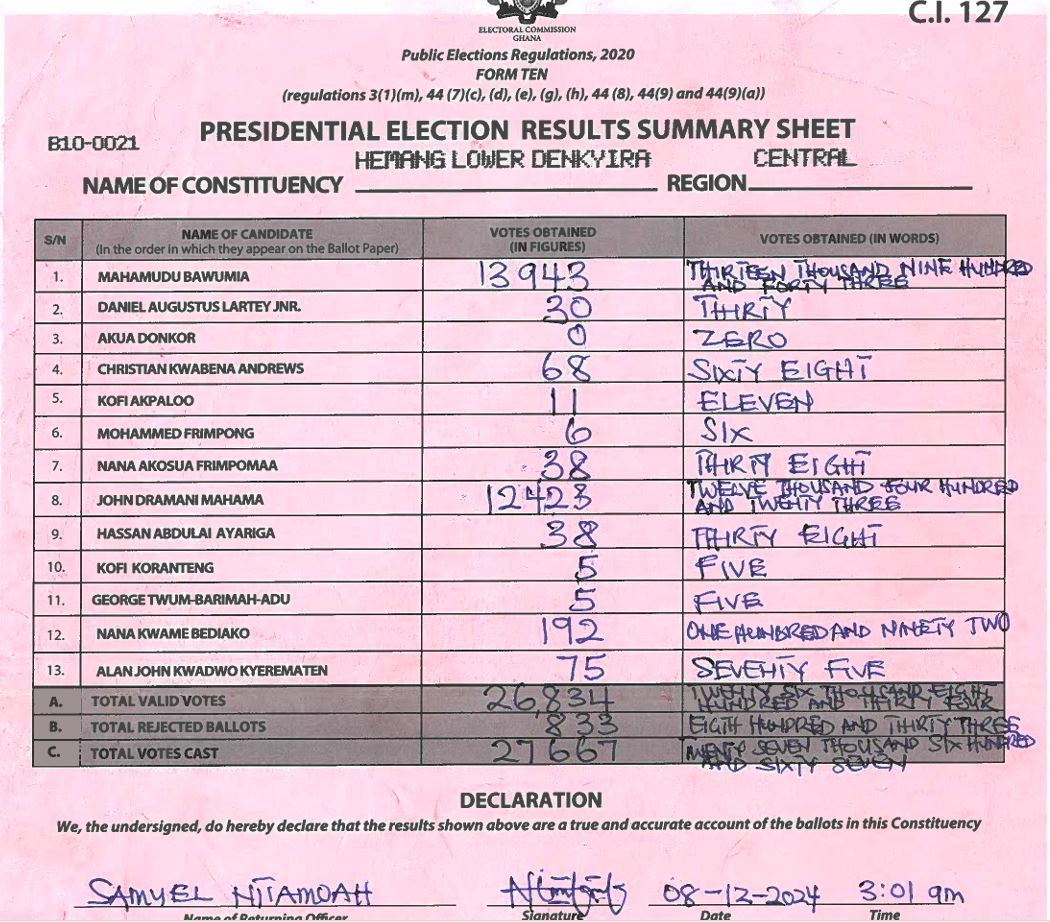 C.I. 127
ELECTORAL COMMISSION
GHANA
Public Elections Regulations, 2020
FORM TEN
(regulations 3(1)(m), 44 (7)(c), (d), (e), (g), (h), 44 (8), 44(9) and 44(9)(a))
B10-0021
PRESIDENTIAL ELECTION RESULTS SUMMARY SHEET
HEMANG LOWER DENKYIRA CENTRAL
NAME OF CONSTITUENCY REGION
S/N NAME OF CANDIDATE (In the order in which they appear on the Ballot Paper) VOTES OBTAINED (IN FIGURES) VOTES OBTAINED (IN WORDS)
1. MAHAMUDU BAWUMIA 13943 THIRTEEN THOUSAND NINE HUNDRED AND FORTY THREE
2. DANIEL AUGUSTUS LARTEY JNR. 30 THIRTY
3. AKUA DONKOR 0 ZERO
4. CHRISTIAN KWABENA ANDREWS 68 SIXTY EIGHT
5. KOFI AKPALOO 11 ELEVEN
6. MOHAMMED FRIMPONG 6 SIX
7. NANA AKOSUA FRIMPOMAA 38 THIRTY EIGHT
8. JOHN DRAMANI MAHAMA 12423 TWELVE THOUSAND FOUR HUNDRED AND TWENTY THREE
9. HASSAN ABDULAI AYARIGA 38 THIRTY EIGHT
10. KOFI KORANTENG 5 FIVE
11. GEORGE TWUM-BARIMAH-ADU 5 FIVE
12. NANA KWAME BEDIAKO 192 ONE HUNDRED AND NINETY TWO
13. ALAN JOHN KWADWO KYEREMATEN 75 SEVENTY FIVE
A. TOTAL VALID VOTES 26,834 TWENTY SIX THOUSAND EIGHT HUNDRED AND THIRTY FOUR
B. TOTAL REJECTED BALLOTS 833 EIGTH HUNDRED AND THIRTY THREE
C. TOTAL VOTES CAST 27667 TWENTY SEVEN THOUSAND SIX HUNDRED AND SIXTY SEVEN
DECLARATION
We, the undersigned, do hereby declare that the results shown above are a true and accurate account of the ballots in this Constituency
SAMUEL NTIAMOAH 08-12-2024 3:01 am
Name of Returning Officer Signature Date Time